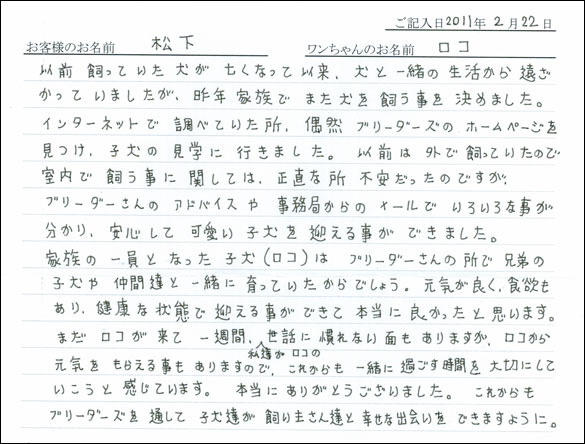 ご記入日2011年 2月22日
お客様のお名前 松下 ワンちゃんのお名前 ロコ
以前 飼っていた犬が 亡くなって以来、犬と一緒の生活から遠ざ
かっていましたが、昨年家族で また犬を飼う事を決めました。
インターネットで 調べていた所、偶然 ブリーダーズの ホームページを
見つけ、子犬の見学に行きました。 以前は外で飼っていたので
室内で飼う事に関しては、正直な所 不安だったのですが、
ブリーダーさんの アドバイスや 事務局からの メールで いろいろな事が
分かり、安心して 可愛い子犬を迎える事ができました。
家族の一員となった子犬(ロコ)は ブリーダーさんの所で兄弟の
子犬や 仲間達と一緒に 育っていたからでしょう。元気が良く、食欲も
あり、健康な状態で迎える事ができて本当に良かったと思います。
まだ ロコが来て 一週間、世話に慣れない面もありますが、ロコから
私達が ロコの
元気をもらえる事もありますので、これからも一緒に過ごす時間を大切にして
いこうと感じています。 本当にありがとうございました。 これからも
ブリーダーズを通して子犬達が飼い主さん達と幸せな出会いをできますように。